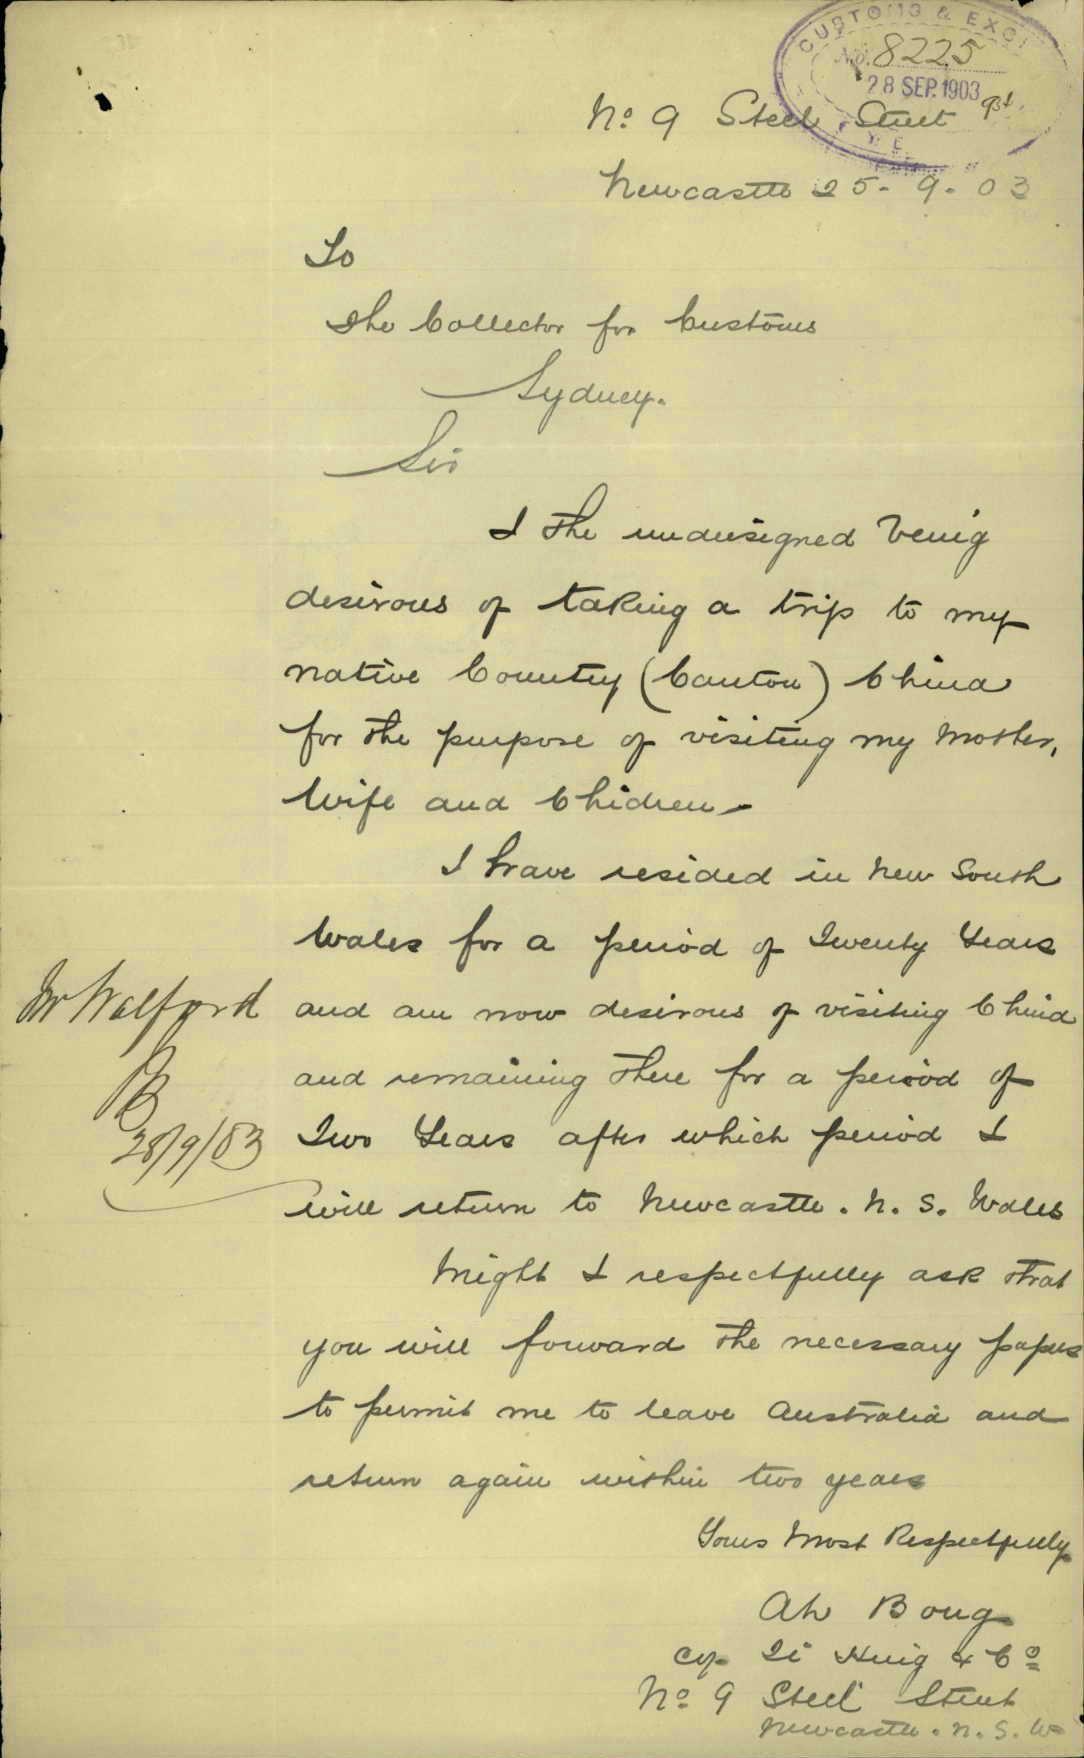 CUSTOMS & EXCI
No. 8225
28 SEP. 1903
No 9 Steel Street
Newcastle 25-9-03
To
The Collector for Customs
Sydney.
Sir
I the undersigned being
desirous of taking a trip to my
native Country (Canton) China
for the purpose of visiting my Mother,
Wife and Chidren-
I have resided in New South
Wales for a period of Twenty Years
and am now desirous of visiting China
and remaining there for a period of
Two Years after which period I
will return to Newcastle. N. S. Wales
Mr Walford
28/9/03
Might I respectfully ask that
you will forward the necessary papers
to permit me to leave Australia and
return again within two years
Yours Most Respectfully
Ah Bong
No 9 Steel Street
Newcastle. N. S. W